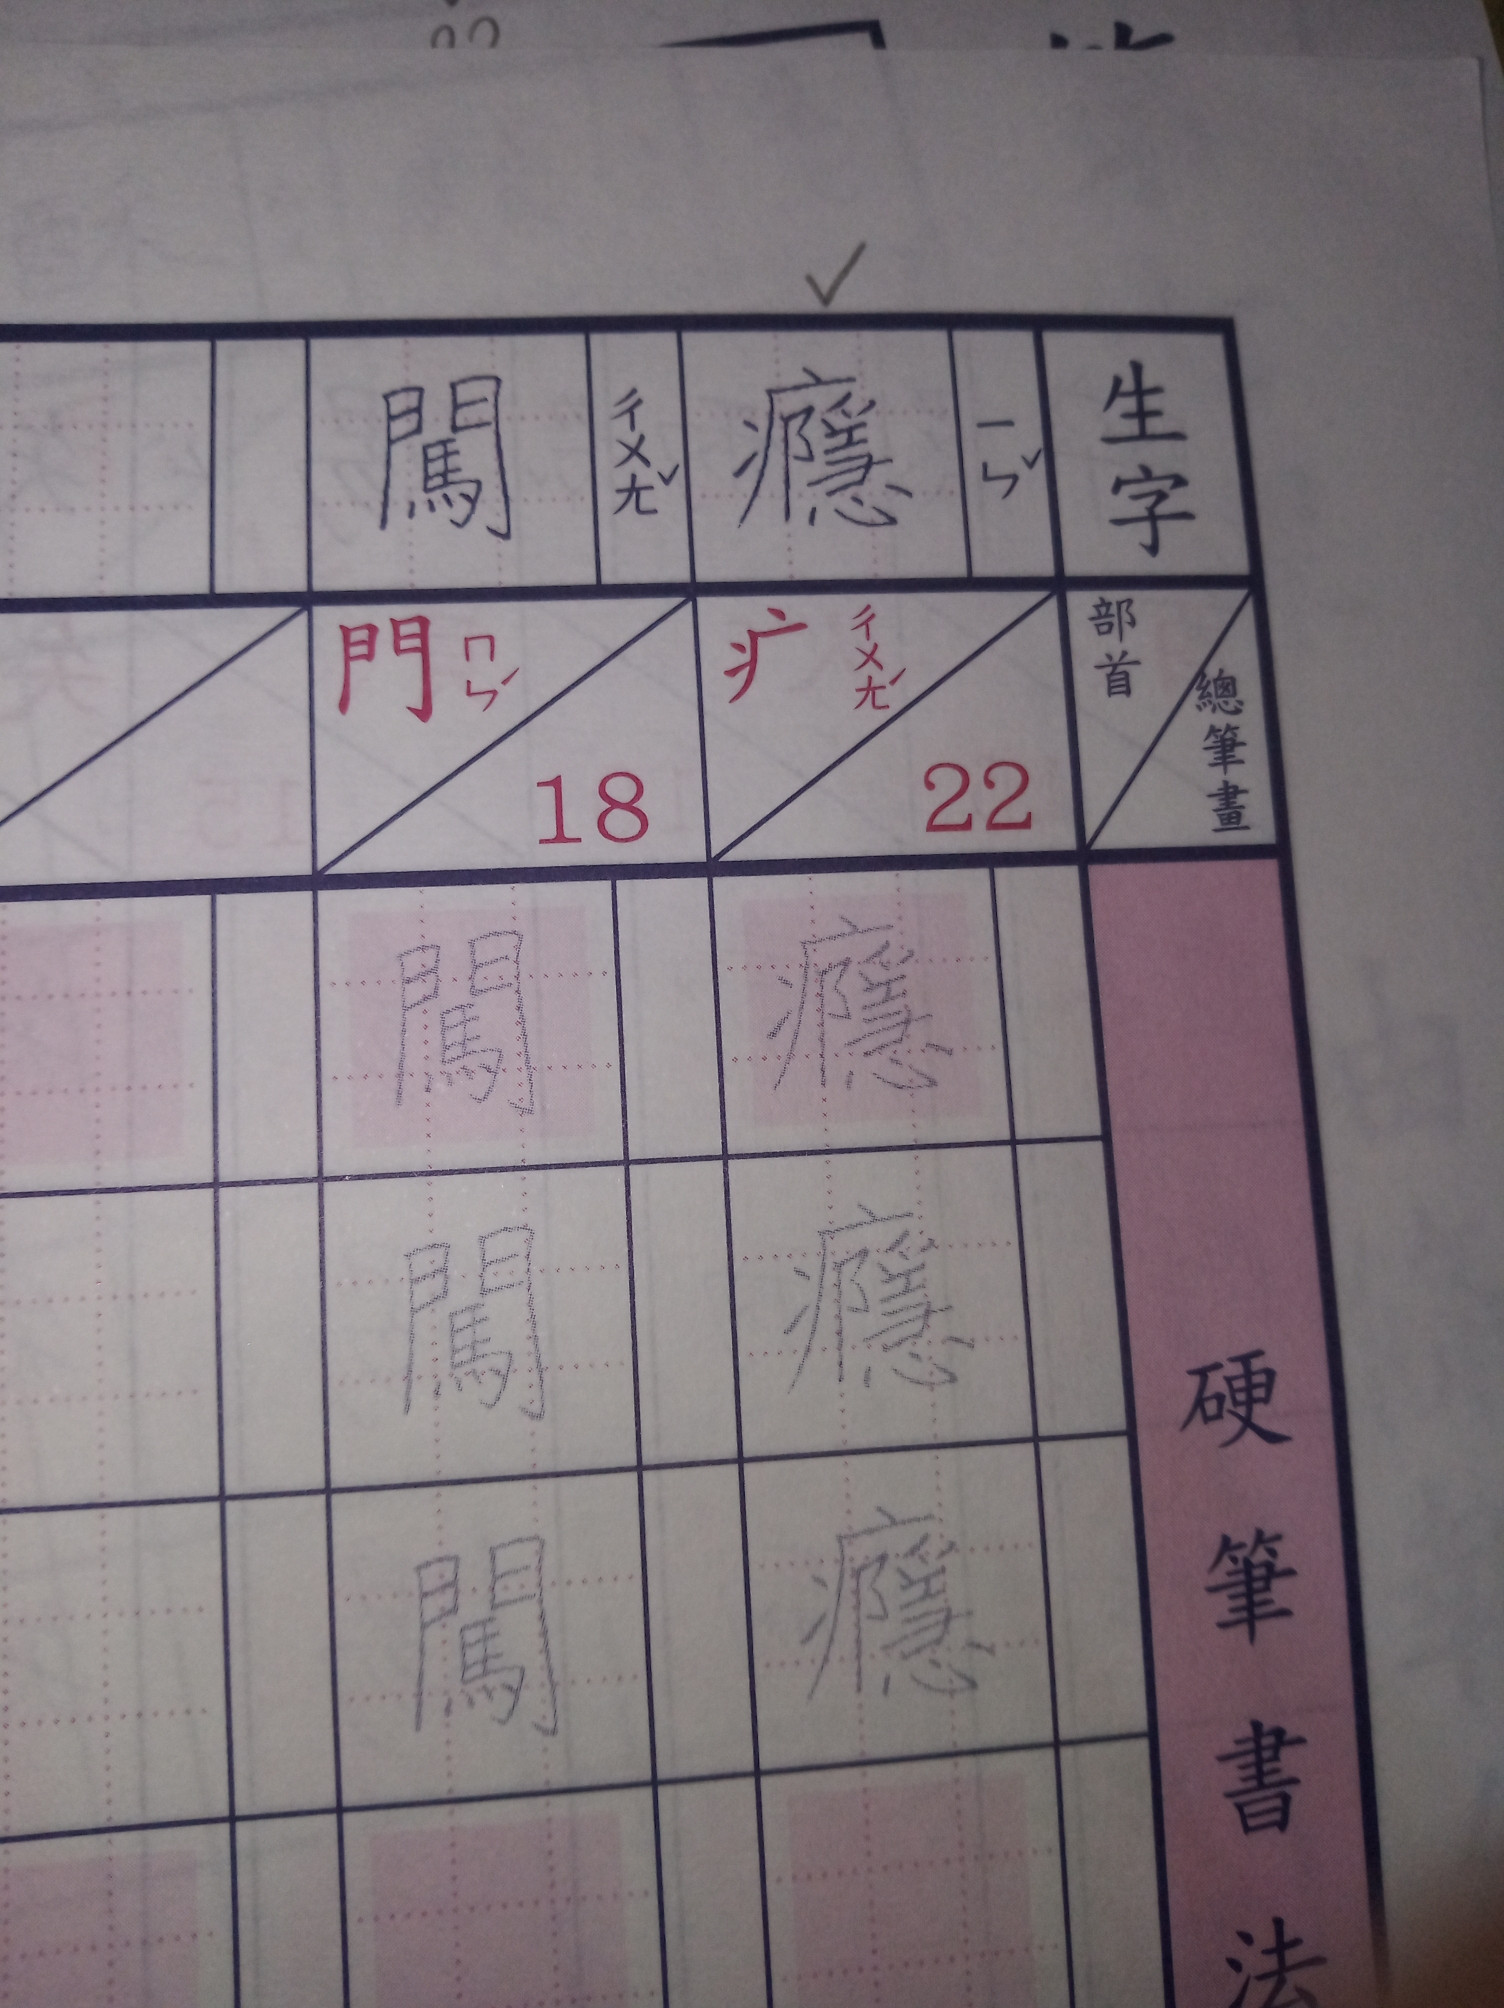 生字
ㄧㄣˇ
癮
ㄔㄨㄤˇ
闖
部首
總筆畫
疒 ㄔㄨㄤˊ
22
門 ㄇㄣˊ
18
硬筆書法
癮
癮
癮
闖
闖
闖